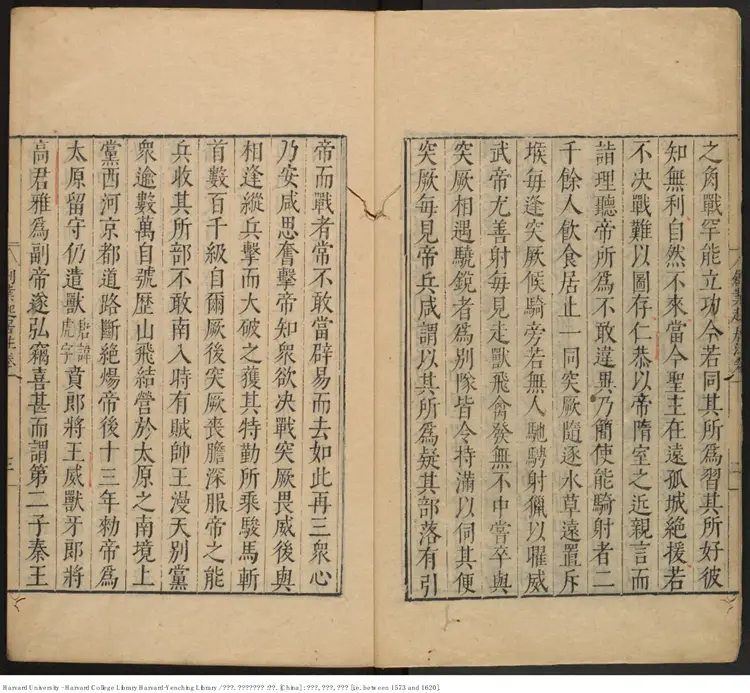 之角戰罕能立功今若同其所爲習其所好彼
知無利自然不來當今聖主在遠孤城絶援若
不决戰難以圖存仁恭以帝隋室之近親言而
詣理聽帝所爲不敢違異乃簡使能騎射者二
千餘人飲食居止一同突厥隨逐水草遠置斥
堠每逢突厥候騎旁若無人馳騁射獵以曜威
武帝尤善射每見走獸飛禽發無不中嘗卒與
突厥相遇驍銳者爲別隊皆令持滿以伺其便
突厥每見帝兵咸謂以其所爲疑其部落有引
帝而戰者常不敢當辟易而去如此再三衆心
乃安咸思奮擊帝知衆欲决戰突厥畏威後與
相逢縱兵擊而大破之獲其特勤所乘駿馬斬
首數百千級自爾厥後突厥喪膽深服帝之能
兵收其所部不敢南入時有賊帥王漫天別黨
衆逾數萬自號歷山飛結營於太原之南境上
黨西河京都道路斷絶煬帝後十三年勑帝爲
太原留守仍遣獸唐諱虎字賁郎將王威獸牙郎將
高君雅爲副帝遂弘竊喜甚而謂第二子秦王
創業起居注卷一
三
Harvard University - Harvard College Library Harvard-Yenching Library / ???. ??????? :??. [China] : ???, ???, ??? [i.e. between 1573 and 1620].